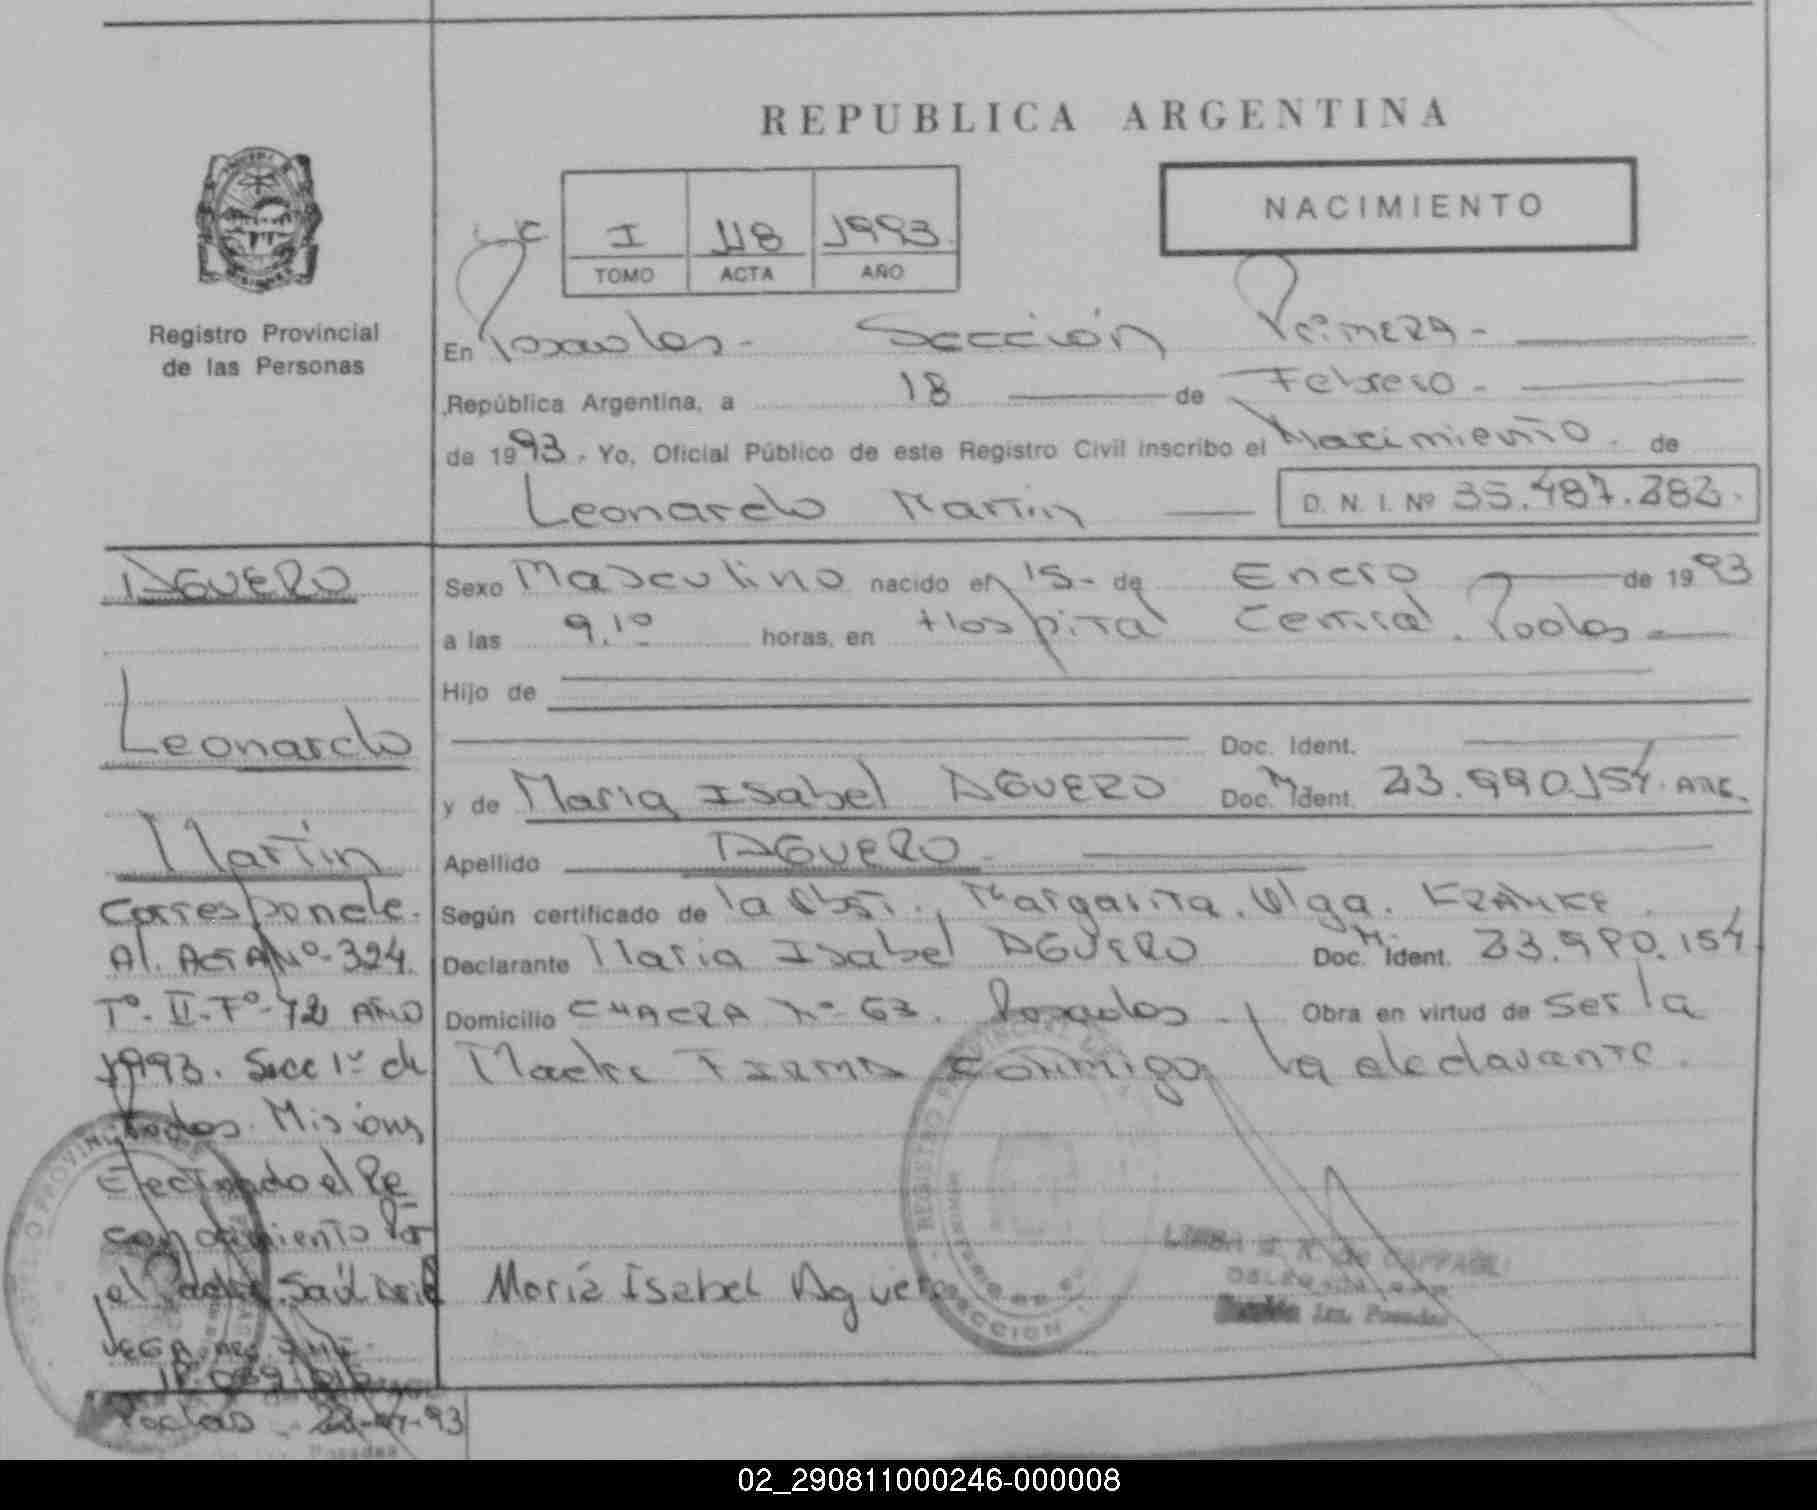 REPUBLICA ARGENTINA
NACIMIENTO
I 118 1993
TOMO ACTA AÑO
Registro Provincial
de las Personas
En Posadas - Sección Primera -
República Argentina, a 18 de Febrero -
de 1993. Yo, Oficial Público de este Registro Civil inscribo el Nacimiento de
Leonardo Martin D. N. I. Nº 35.487.282.
AGUERO
Leonardo
Martin
Corresponde
Al. ACTA Nº 324.
Tº- II-Fº-72 AÑO
1993. Secc 1º de
Pdas. Misions
Efectuado el Re
conocimiento Por
el padre Saúl
VEGA
Podas 23-07-93
Sexo Masculino nacido el 15- de Enero de 1993
a las 9,10 horas, en Hospital Central. Podas -
Hijo de
Doc. Ident.
y de Maria Isabel AGUERO Doc. Ident. 23.990.154. ARG.
Apellido AGUERO -
Según certificado de la Obst., Margarita. Olga. KRANKE.
Declarante Maria Isabel AGUERO Doc. Ident. 23.990.154
Domicilio CHACRA Nº 63. Posadas - Obra en virtud de ser la
Madre FIRMA conmigo la declarante.
María Isabel Aguero
REGISTRO PROVINCIAL
SECCION
1ra. Posadas
Posadas
02_290811000246-000008